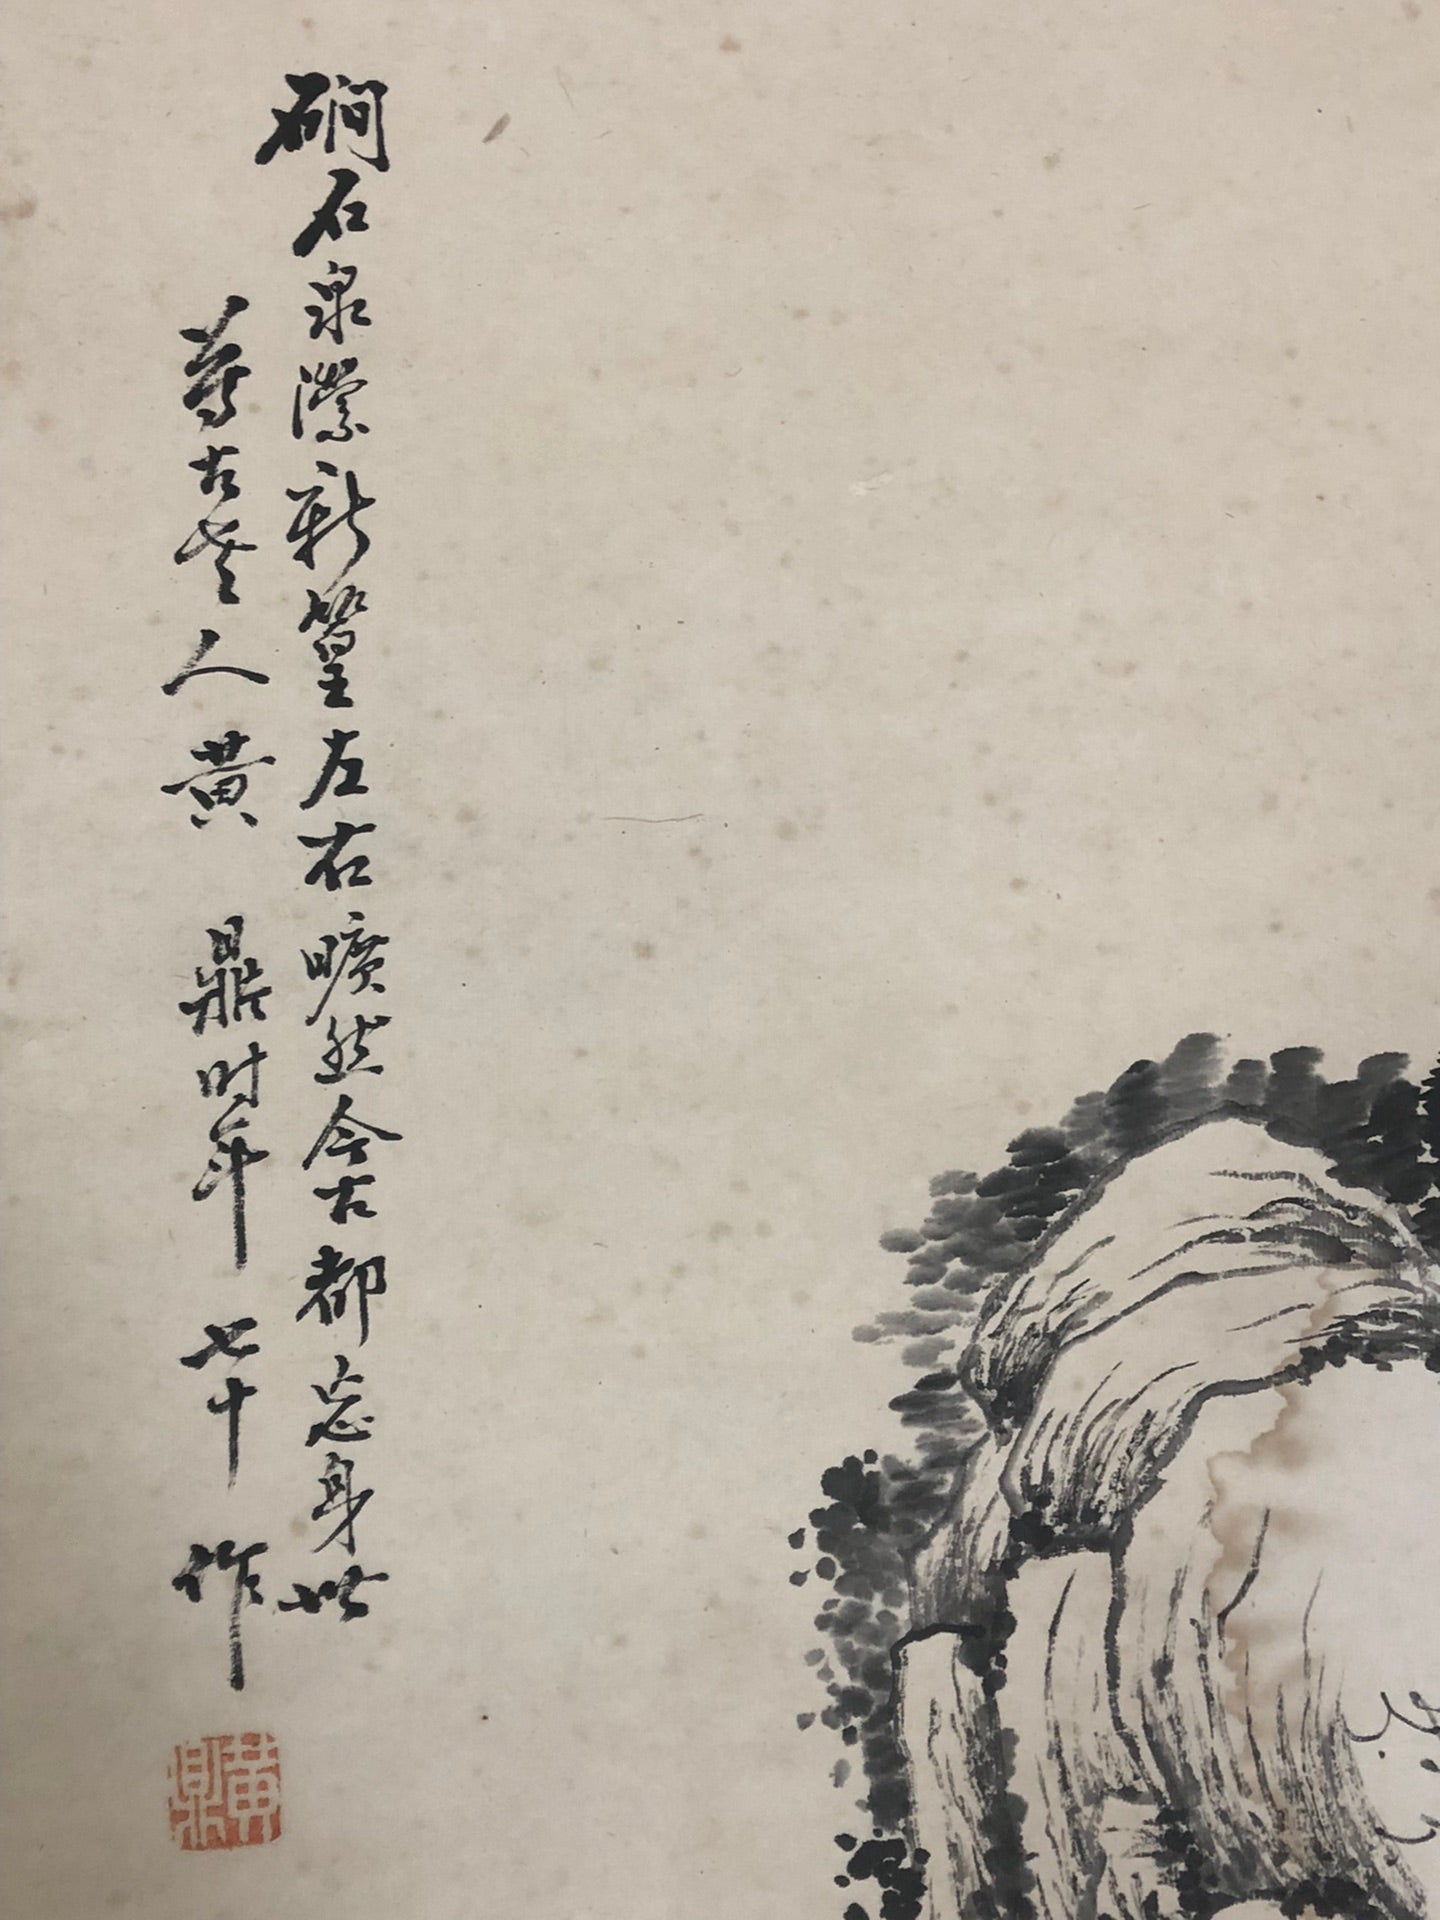 磵石泉瀠新篁左右曠然今古都忘身世
尊古老人黄鼎时年七十作
黄鼎